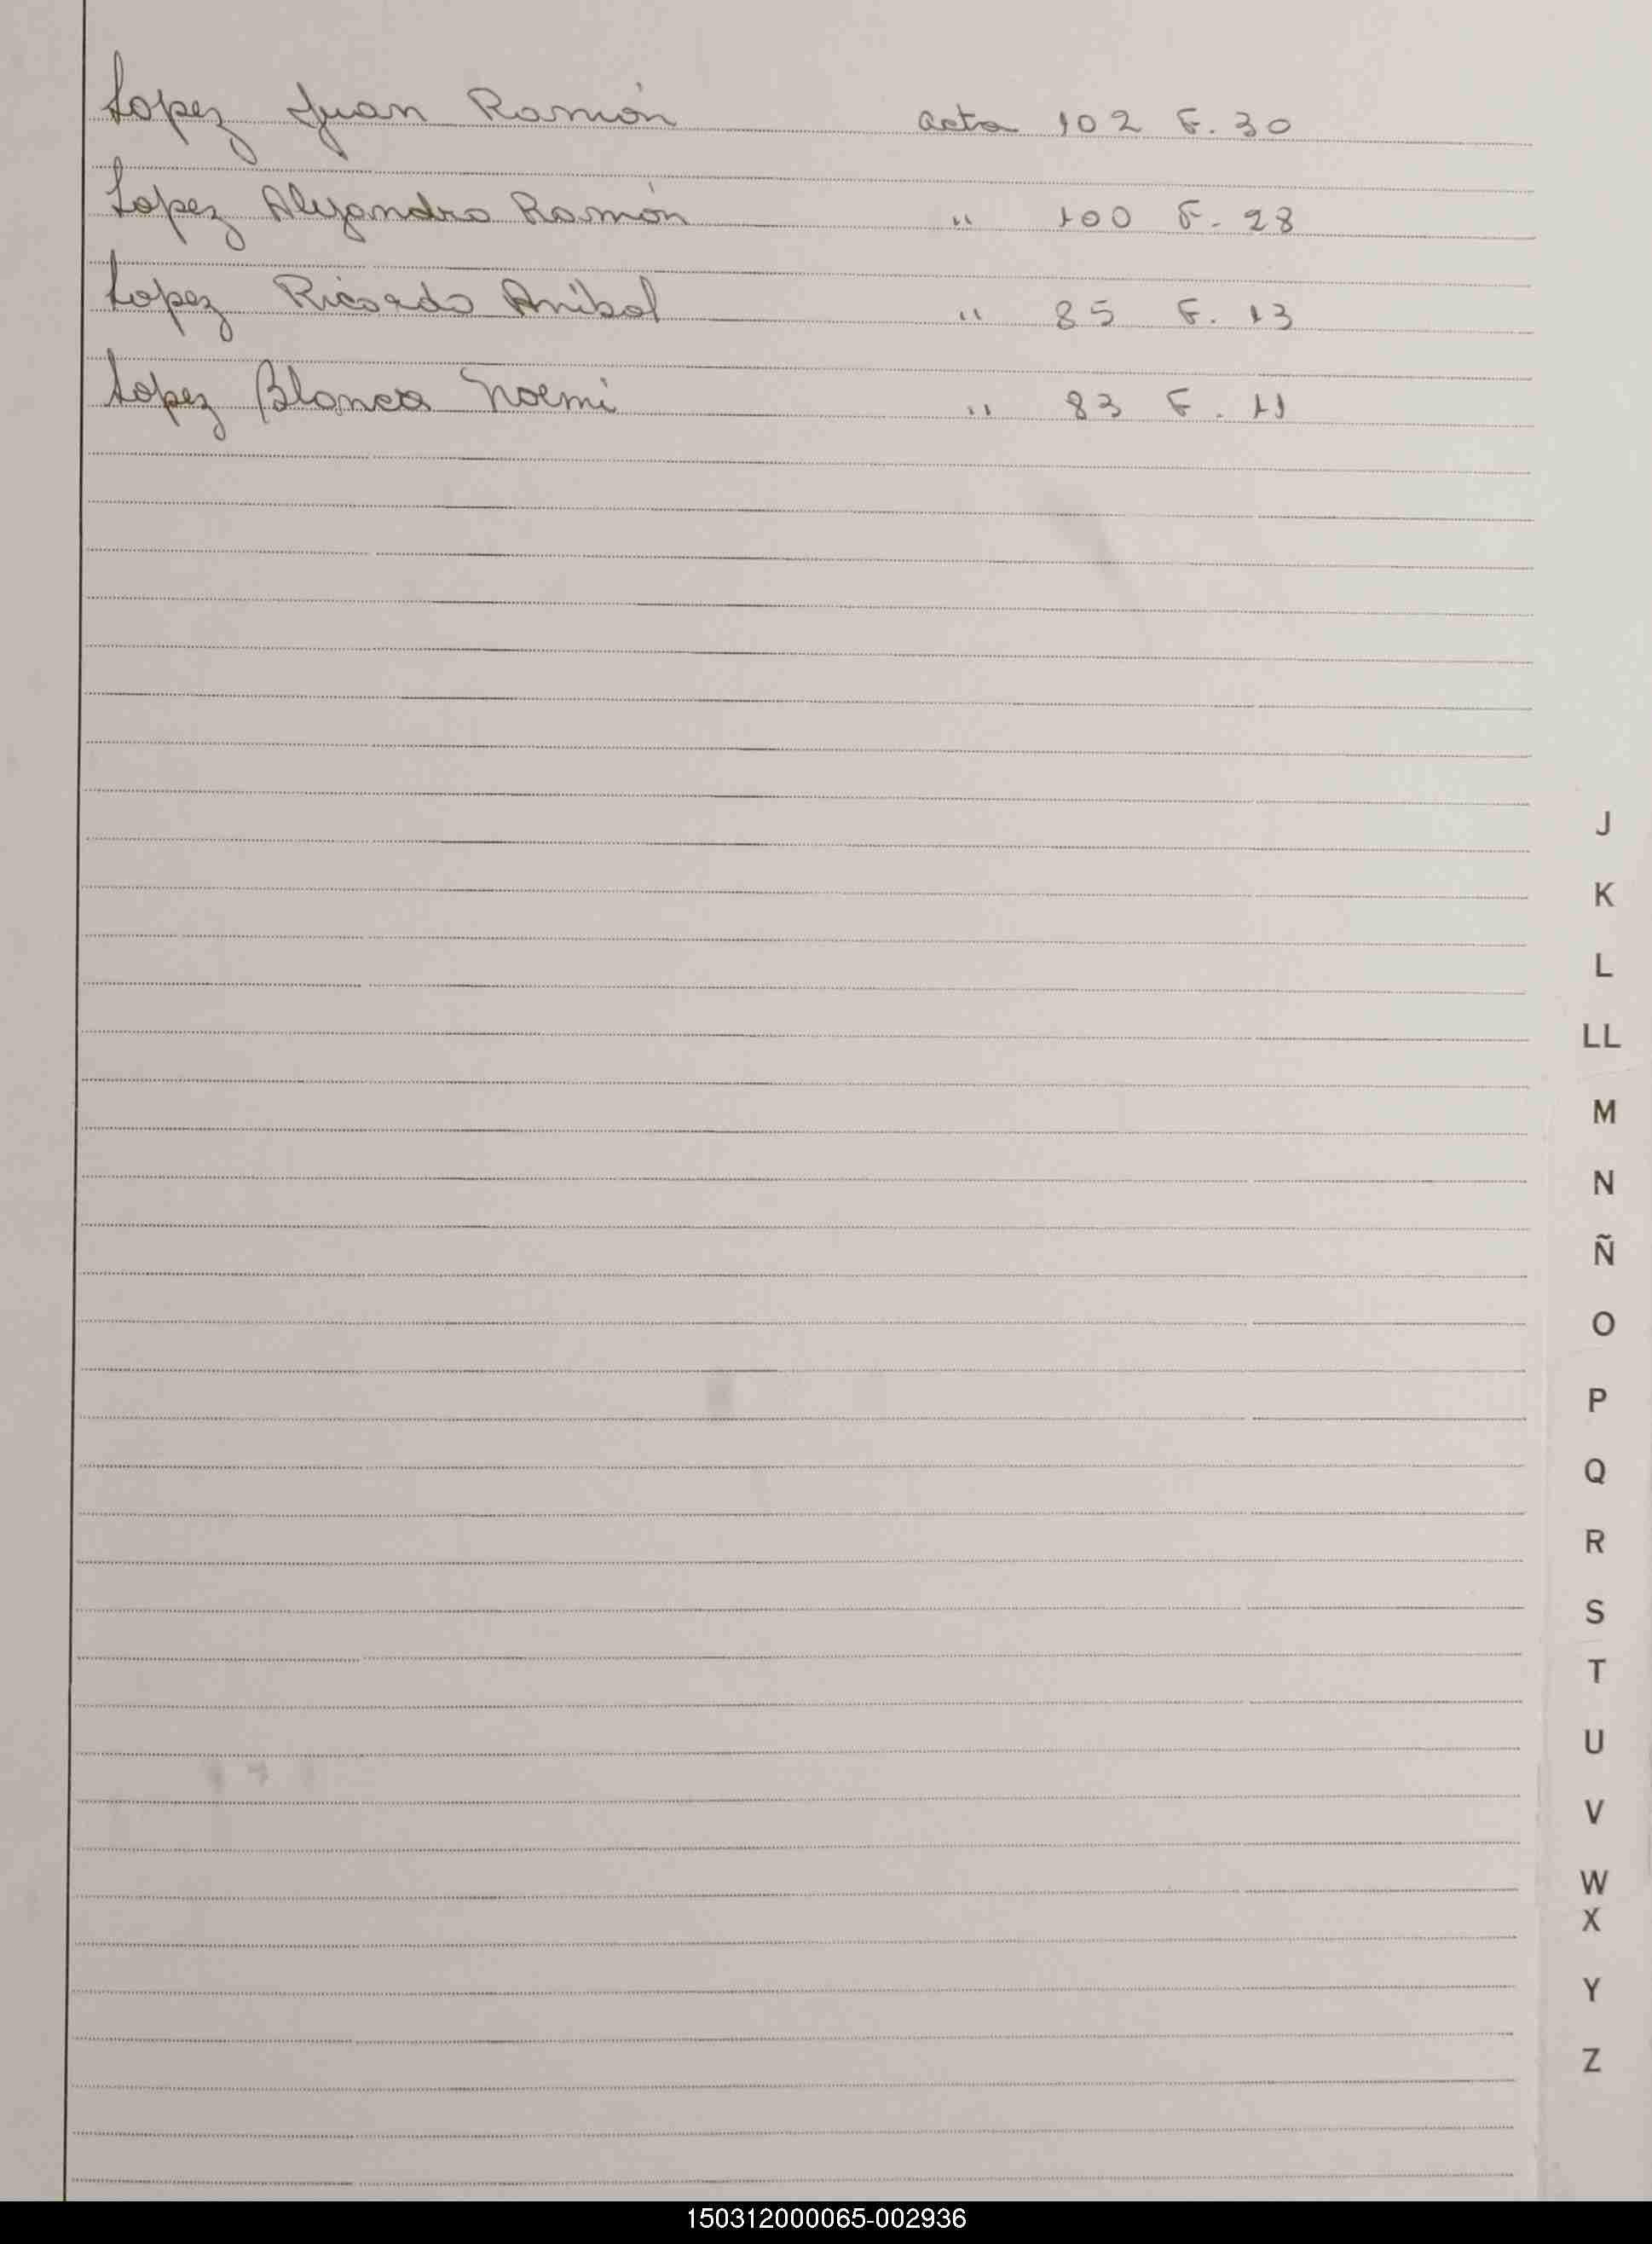 Lopez Juan Ramón acta 102 F. 30
Lopez Alejandro Ramón " 100 F. 28
Lopez Ricardo Anibal " 85 F. 13
Lopez Blanca Noemi " 83 F. 11
J
K
L
LL
M
N
Ñ
O
P
Q
R
S
T
U
V
W
X
Y
Z
150312000065-002936